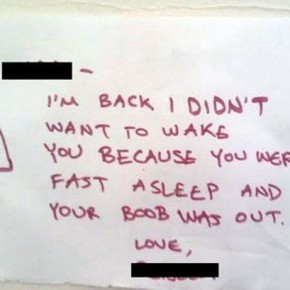 -
I'M BACK I DIDN'T
WANT TO WAKE
YOU BECAUSE YOU WER
FAST ASLEEP AND
YOUR BOOB WAS OUT.
LOVE,